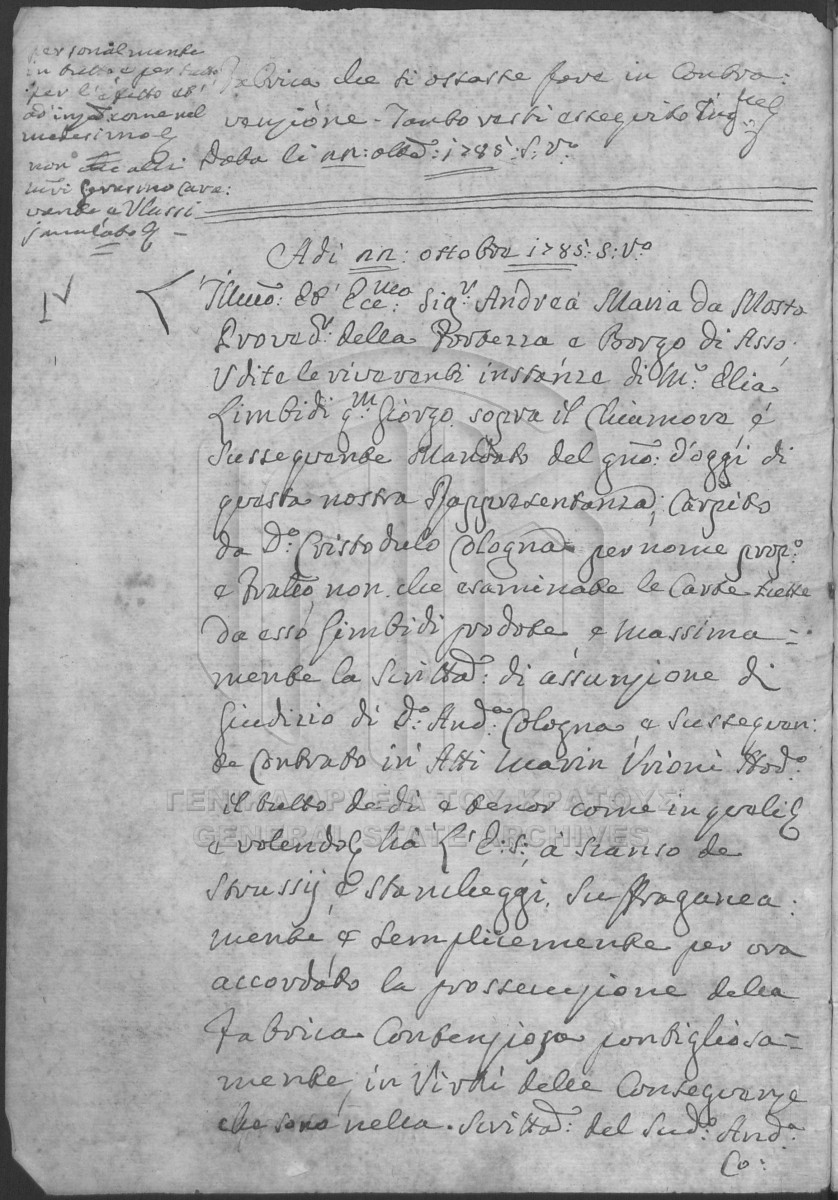 personalmente
in tutto e per tutto
per l'effetto et
nel
medesimo
non
Gerasimo Cara:
vande e Vlassi
Fabrica che si osasse fare in Contra:
venzione - Tanto resti esseguito
Data li 22: ottb: 1785: S: Vo
Adi 22: ottobre 1785: S: Vo
IV
Illmo: et Eccmo: Sigr Andrea Maria da Mosto
Provedr della Fortezza e Borgo di Asso.
Udite le riverenti instanze di Mo Elia
Limbidi qm Giorgo sopra il Chiamore é
Susseguente Mandato del gno: d'oggi di
questa nostra Rappresentanza, Carpito
da Do Cristodulo Cologna per nome propo
e non che esaminate le Carte
da esso Limbidi prodote e massima=
mente la Scrittа: di assunzione di
Giudizio di Do Anda Cologna, e Susseguen:
te Contrato in Atti Marin Vrioni Nodo
il tutto de dì e tenor come in quelli
e volendo hà L' E: S:, à scanso de
Strussij, e stancheggi, Suffraganea:
mente, e semplicemente per ora
accordato la prossecuzione della
Fabrica Contenziosa pontigliosa=
mente, in Virtù delle Conseguenze
che sono nella Scritta: del Sudo: Anda
Co:
ΓΕΝΙΚΑ ΑΡΧΕΙΑ ΤΟΥ ΚΡΑΤΟΥΣ
GENERAL STATE ARCHIVES